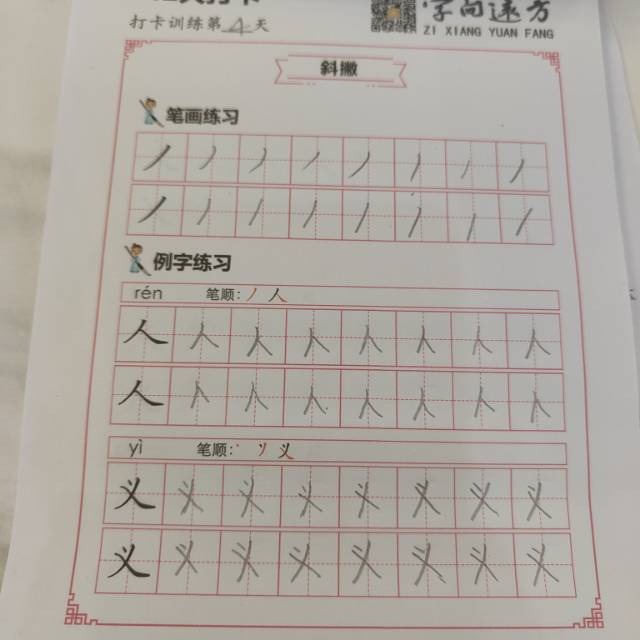 打卡训练第4天
字向远方
ZI XIANG YUAN FANG
斜撇
笔画练习
丿丿丿丿丿丿丿丿
丿丿丿丿丿丿丿丿
例字练习
rén 笔顺:丿人
人人人人人人人人
人人人人人人人人
yì 笔顺:丶丷义
义义义义义义义义
义义义义义义义义